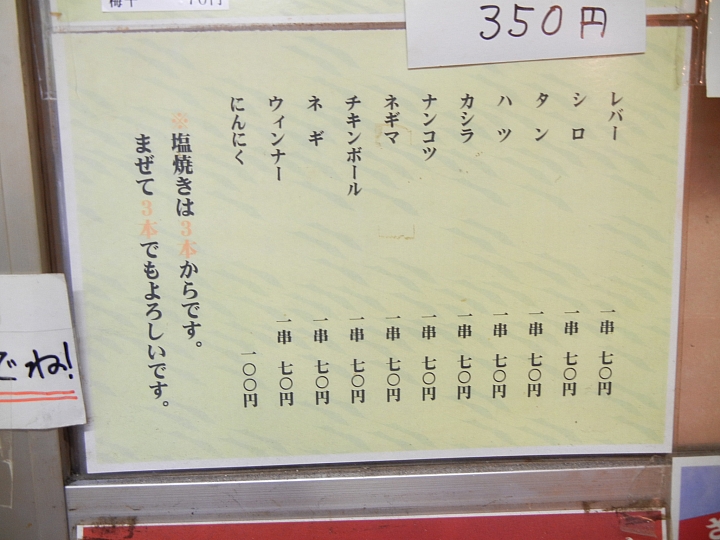 350円
レバー 一串 七〇円
シロ 一串 七〇円
タン 一串 七〇円
ハツ 一串 七〇円
カシラ 一串 七〇円
ナンコツ 一串 七〇円
ネギマ 一串 七〇円
チキンボール 一串 七〇円
ネギ 一串 七〇円
ウィンナー 一串 七〇円
にんにく 一〇〇円
※塩焼きは3本からです。
まぜて3本でもよろしいです。
でね!